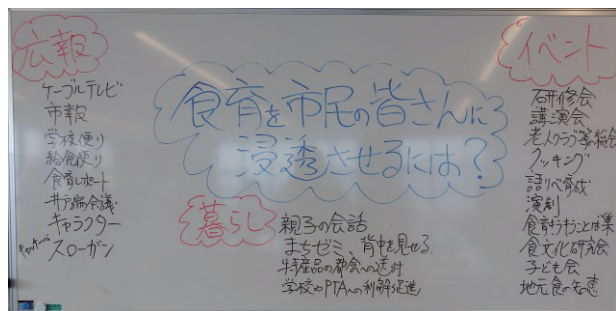 広報
ケーブルテレビ
市報
学校便り
給食便り
食育レポート
井戸端会議
キャラクター
スローガン
食育を市民の皆さんに
浸透させるには？
暮らし
親子の会話
まちゼミ、背中を見せる
特産品の都会への送付
学校やPTAへの利解促進
イベント
研修会
講演会
老人クラブ等総会
クッキング
語りべ育成
演劇
食文化研究会
子ども会
地元食の知恵